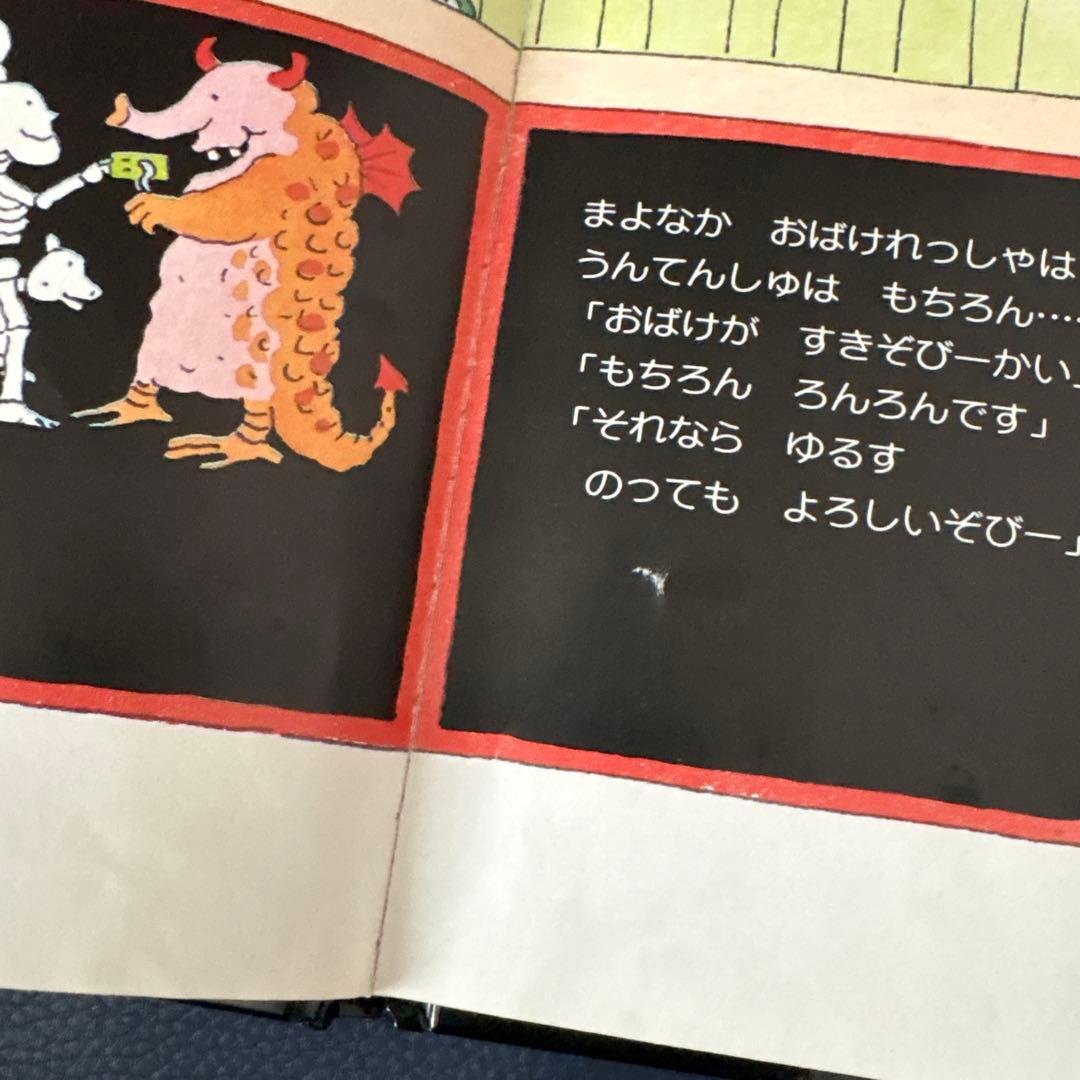 まよなか　おばけれっしゃは
うんてんしゅは　もちろん……
「おばけが　すきぞびーかい」
「もちろん　ろんろんです」
「それなら　ゆるす
のっても　よろしいぞびー」